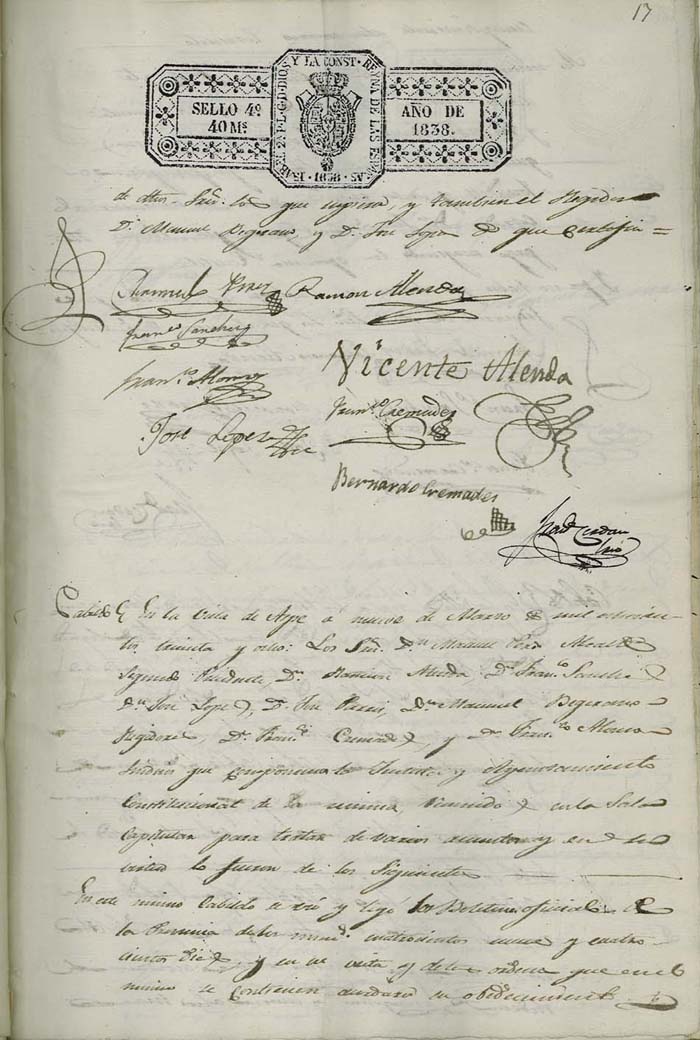 17
SELLO 4º
40 Ms.
ISABEL 2ª P. L. G. D. DIOS Y LA CONST. REYNA DE LAS ESPAÑAS · 1838 ·
AÑO DE
1838.
de dhos. Sres. los que supieron, y tambien el Regidor
Dn. Manuel Begerano, y Dn. José Lopez de que certifico =
Manuel Perez
Ramon Alenda
Franco. Sanchez
Vicente Alenda
Franco. Alonso
Franco. Cremades
José Lopez
Bernardo Cremades
Cabildo En la villa de Aspe á nueve de Marzo de mil ochocien-
tos treinta y ocho: Los Sres. Dn. Manuel Perez Alcalde
segundo Presidente, Dn. Ramon Alenda, Dn. Franco. Sanchez
Dn. José Lopez, Dn. José Dn. Manuel Begerano
Regidores, Dn. Franco. Cremades, y Dn. Franco. Alonso
Sindico que componen la Justicia y Ayuntamiento
Constitucional de la misma, reunidos en la Sala
Capitular para tratar de varios asuntos y en su
virtud lo fueron de los siguientes
En este mismo Cabildo se vió y leyó los Boletines oficiales de
la Provincia de los numos. cuatrocientos nueve y cuatro-
cientos diez, y en su vista y de las ordenes que en el
mismo se contienen acordaron su obedecimiento